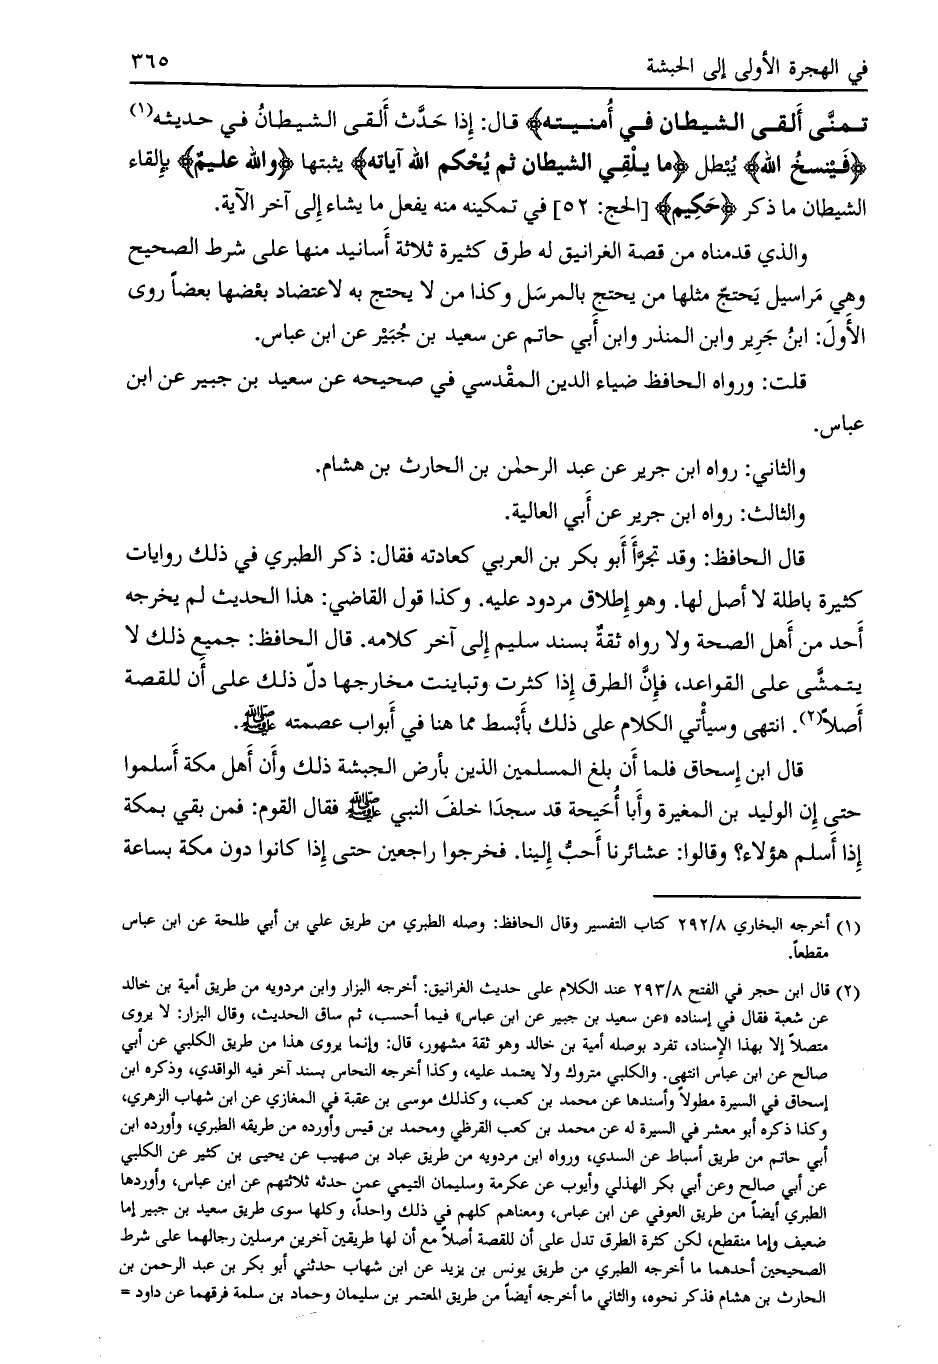 في الهجرة الأولى إلى الحبشة ٣٦٥
تـمنَّى أَلقـى الـشيطان فـي أُمنيـته﴾ قال: إذا حَدَّث أَلقى الشيطانُ في حديثه(١)
﴿فَيَنسخُ الله﴾ يُبْطل ﴿ما يـلْقِي الشيطان ثم يُحْكم الله آياته﴾ يثبتها ﴿والله عليمٌ﴾ بإلقاء
الشيطان ما ذكر ﴿حَكِيم﴾ [الحج: ٥٢] في تمكينه منه يفعل ما يشاء إلى آخر الآية.
والذي قدمناه من قصة الغرانيق له طرق كثيرة ثلاثة أَسانيد منها على شرط الصحيح
وهي مَراسيل يَحتجّ مثلها من يحتج بالمرسَل وكذا من لا يحتج به لاعتضاد بعْضها بعضاً روى
الأَولَ: ابنُ جَرِير وابن المنذر وابن أَبي حاتم عن سعيد بن جُبَيْر عن ابن عباس.
قلت: ورواه الحافظ ضياء الدين المقْدسي في صحيحه عن سعيد بن جبير عن ابن
عباس.
والثاني: رواه ابن جرير عن عبد الرحمٰن بن الحارث بن هشام.
والثالث: رواه ابن جرير عن أَبي العالية.
قال الحافظ: وقد تجرَّأَ أَبو بكر بن العربي كعادته فقال: ذكر الطبري في ذلك روايات
كثيرة باطلة لا أصل لها. وهو إِطلاق مردود عليه. وكذا قول القاضي: هذا الحديث لم يخرجه
أَحد من أَهل الصحة ولا رواه ثقةٌ بسند سليم إِلى آخر كلامه. قال الحافظ: جميع ذلك لا
يتمشَّى على القواعد، فإِنَّ الطرق إِذا كثرت وتباينت مخارجها دلّ ذلك على أَن للقصة
أَصلاً(٢). انتهى وسيأْتي الكلام على ذلك بأَبْسط مما هنا في أَبواب عصمته ﷺ.
قال ابن إِسحاق فلما أَن بلغ المسلمين الذين بأَرض الحبشة ذلك وأَن أَهل مكة أَسلموا
حتى إِن الوليد بن المغيرة وأَبا أُحَيحة قد سجدَا خلفَ النبي ﷺ فقال القوم: فمن بقي بمكة
إِذا أَسلم هؤلاء؟ وقالوا: عشائرنا أَحبُّ إِلينا. فخرجوا راجعين حتى إِذا كانوا دون مكة بساعة
(١) أخرجه البخاري ٢٩٢/٨ كتاب التفسير وقال الحافظ: وصله الطبري من طريق علي بن أبي طلحة عن ابن عباس
مقطعاً.
(٢) قال ابن حجر في الفتح ٢٩٣/٨ عند الكلام على حديث الغرانيق: أخرجه البزار وابن مردويه من طريق أمية بن خالد
عن شعبة فقال في إسناده «عن سعيد بن جبير عن ابن عباس» فيما أحسب، ثم ساق الحديث، وقال البزار: لا يروى
متصلاً إلا بهذا الإسناد، تفرد بوصله أمية بن خالد وهو ثقة مشهور، قال: وإنما يروى هذا من طريق الكلبي عن أبي
صالح عن ابن عباس انتهى. والكلبي متروك ولا يعتمد عليه، وكذا أخرجه النحاس بسند آخر فيه الواقدي، وذكره ابن
إسحاق في السيرة مطولاً وأسندها عن محمد بن كعب، وكذلك موسى بن عقبة في المغازي عن ابن شهاب الزهري،
وكذا ذكره أبو معشر في السيرة له عن محمد بن كعب القرظي ومحمد بن قيس وأورده من طريقه الطبري، وأورده ابن
أبي حاتم من طريق أسباط عن السدي، ورواه ابن مردويه من طريق عباد بن صهيب عن يحيى بن كثير عن الكلبي
عن أبي صالح وعن أبي بكر الهذلي وأيوب عن عكرمة وسليمان التيمي عمن حدثه ثلاثتهم عن ابن عباس، وأوردها
الطبري أيضاً من طريق العوفي عن ابن عباس، ومعناهم كلهم في ذلك واحداً، وكلها سوى طريق سعيد بن جبير إما
ضعيف وإما منقطع، لكن كثرة الطرق تدل على أن للقصة أصلاً مع أن لها طريقين آخرين مرسلين رجالهما على شرط
الصحيحين أحدهما ما أخرجه الطبري من طريق يونس بن يزيد عن ابن شهاب حدثني أبو بكر بن عبد الرحمن بن
الحارث بن هشام فذكر نحوه، والثاني ما أخرجه أيضاً من طريق المعتمر بن سليمان وحماد بن سلمة فرقهما عن داود =